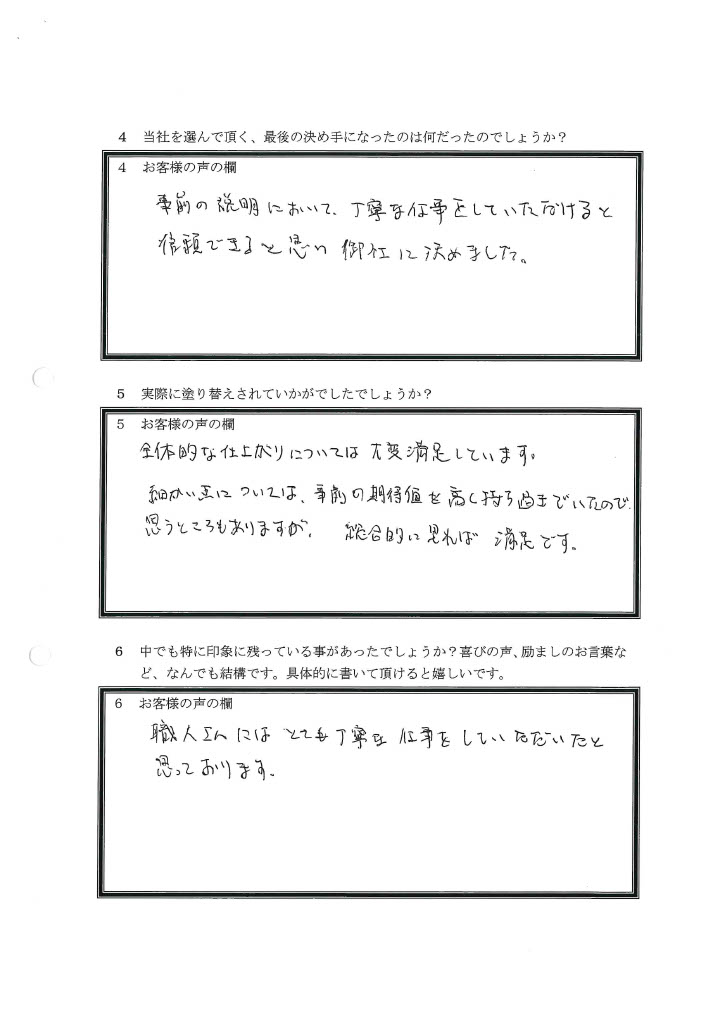 4 当社を選んで頂く、最後の決め手になったのは何だったのでしょうか？
4 お客様の声の欄
事前の説明において、丁寧な仕事をしていただけると
信頼できると思い 御社に決めました。
5 実際に塗り替えされていかがでしたでしょうか？
5 お客様の声の欄
全体的な仕上がりについては大変満足しています。
細かい点については、事前の期待値を高く持ち過ぎていたので、
思うところもありますが、 総合的に見れば 満足です。
6 中でも特に印象に残っている事があったでしょうか？喜びの声、励ましのお言葉な
ど、なんでも結構です。具体的に書いて頂けると嬉しいです。
6 お客様の声の欄
職人さんにはとても丁寧な仕事をしていただいたと
思っております。